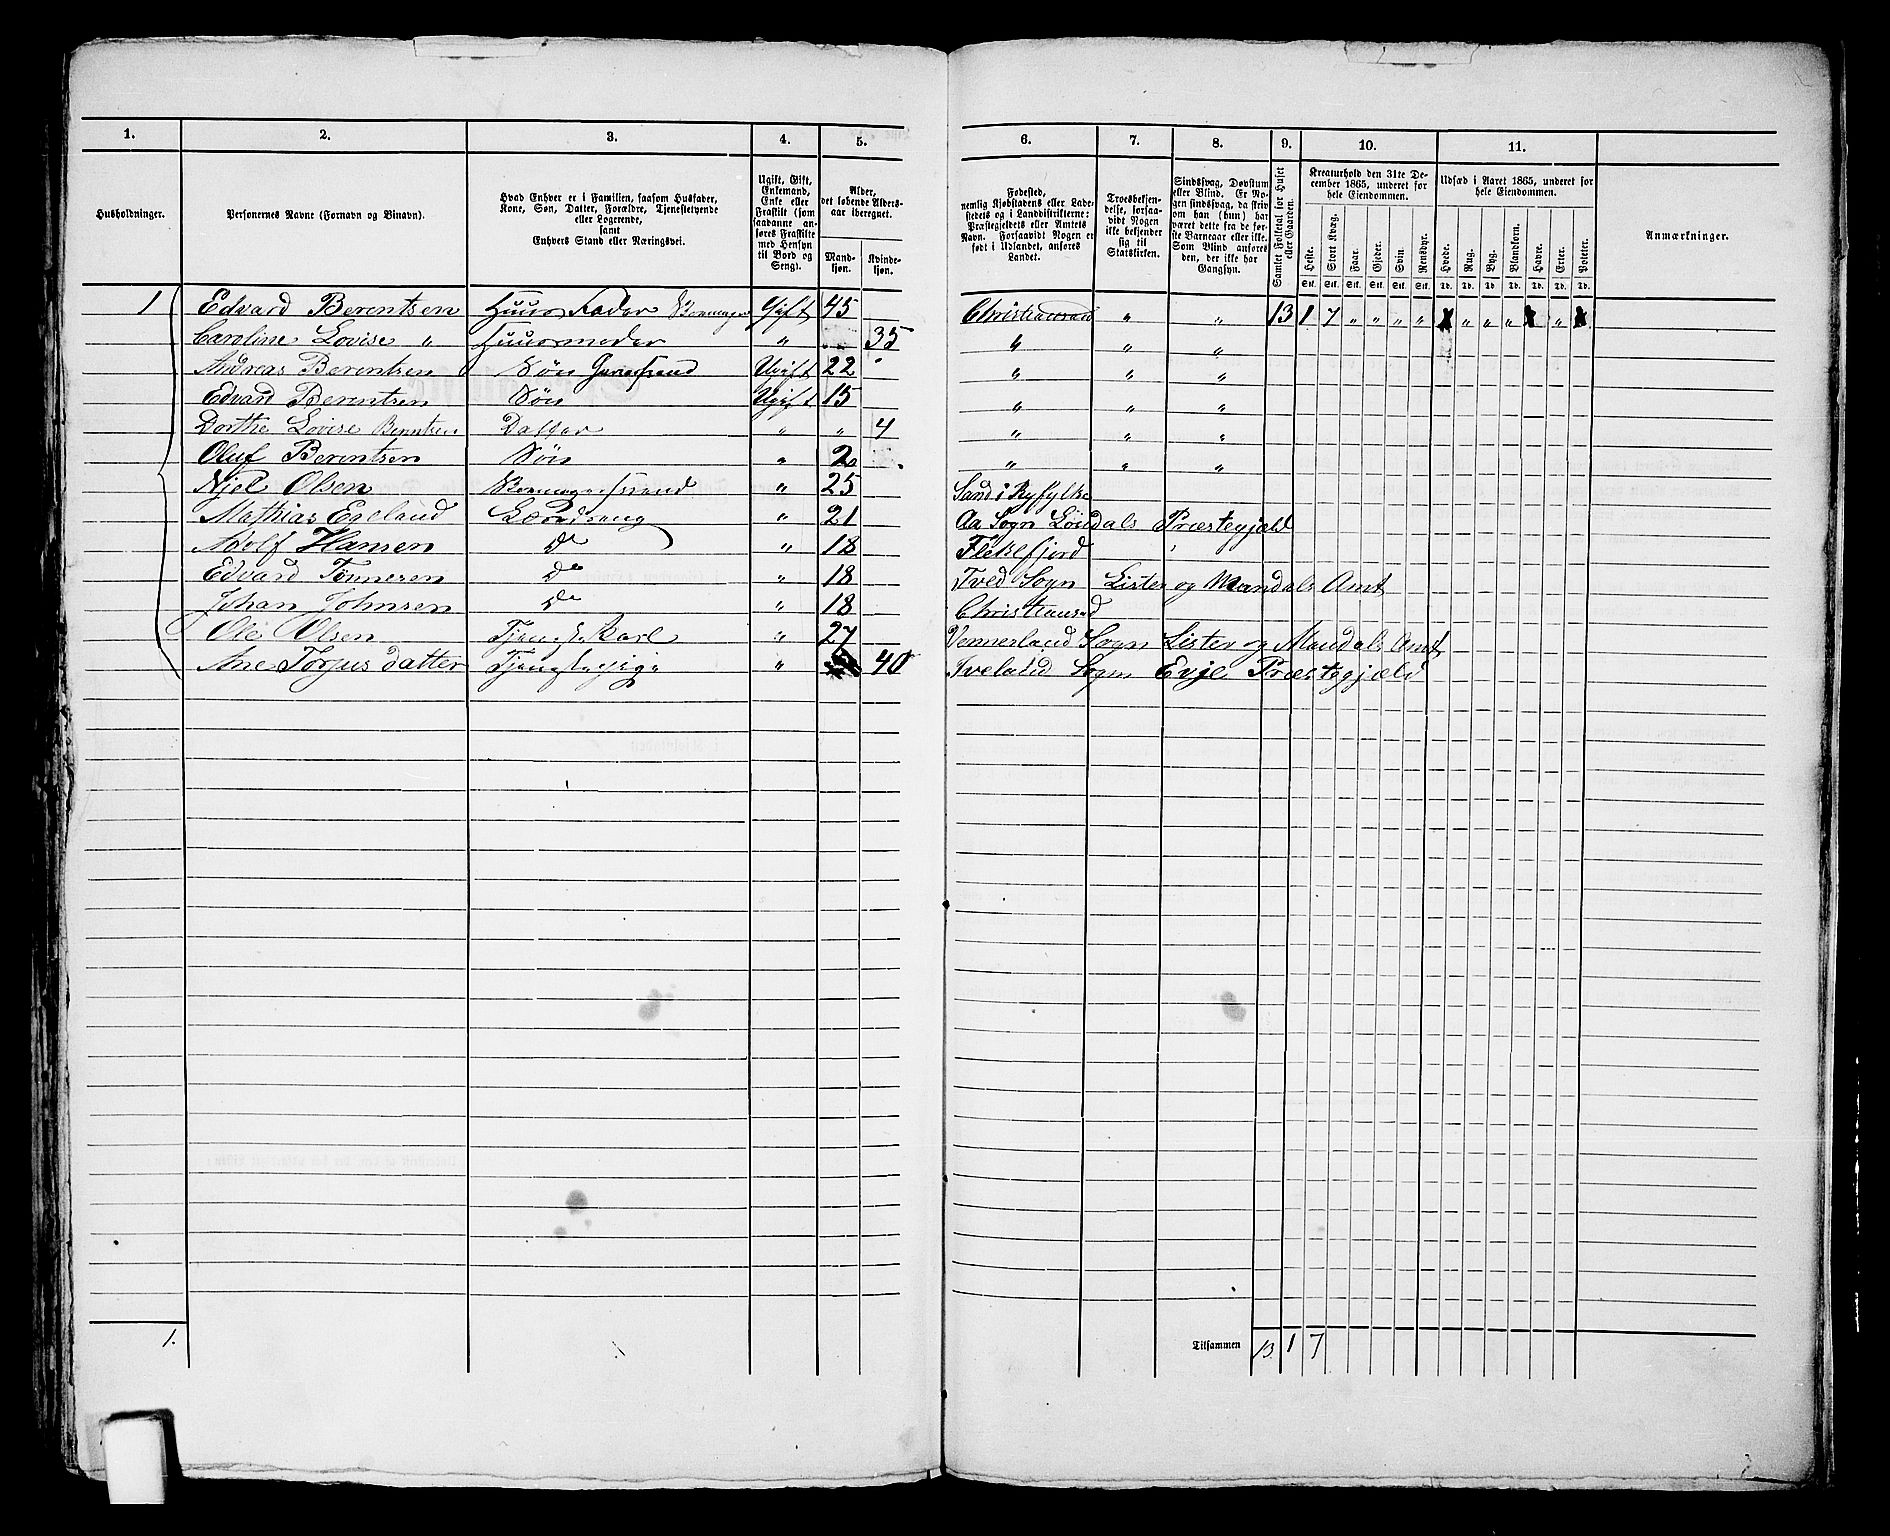 1. 2. 3. 4. 5. 6. 7. 8. 9. 10. 11.
Husholdninger.
Personernes Navne (Fornavn og Binavn).
Hvad Enhver er i Familien, saasom Husfader,
Kone, Søn, Datter, Forældre, Tjenestetyende
eller Logerende,
samt
Enhvers Stand eller Næringsvei.
Ugift, Gift,
Enkemand,
Enke eller
Fraskilt (som
saadanne an-
føres Fraskilte
med Hensyn
til Bord og
Seng).
Alder,
det løbende Alders-
aar iberegnet.
Mand-
kjøn.
Kvinde-
kjøn.
Fødested,
nemlig Kjøbstadens eller Lade-
stedets og i Landdistrikterne:
Præstegjeldets eller Amtets
Navn. Forsaavidt Nogen er
født i Udlandet, anføres
Landet.
Troesbekjen-
delse, forsaa-
vidt Nogen
ikke bekjender
sig til
Statskirken.
Sindssvag, Døvstum
eller Blind. Er No-
gen sindssvag, da skriv
om han (hun) har
været dette fra de før-
ste Barneaar eller ikke.
Som Blind anføres
den, der ikke har
Gangsyn.
Samlet Folketal for Huset
eller Gaarden.
Kreaturhold den 31te De-
cember 1865, underet for
hele Eiendommen.
Heste. Stort Kvæg. Faar. Gjeder. Svin. Rensdyr.
Stk. Stk. Stk. Stk. Stk. Stk.
Udsæd i Aaret 1865, underet for
hele Eiendommen.
Hvede. Rug. Byg. Blandkorn. Havre. Erter. Poteter.
Td. Td. Td. Td. Td. Td. Td.
Anmærkninger.
1 Edvard Berentsen Huus Fader Gift 45 Christianssand " " 13 1 7 " " " " " " " "
Caroline Lovise " Huusmoder " 35 " " "
Andreas Berentsen Søn Ugift 22 " " " "
Edvard Berentsen Søn Ugift 15 " " "
Dorthe Lovise Berntsen Datter " " 4 " " "
Oluf Berentsen Søn " 2 " " "
Njel Olsen " 25 Sand i Ryfylke
Mathias Egeland Læredreng " 21 Aa Sogn Præstegjæld
Adolf Hansen Do " 18 Flekkefjord
Edvard Tønnesen Do " 18 Tved Sogn Lister og Mandals Amt
Johan Johnsen Do " 18 Christiansand
Ole Olsen Tjenestekarl " 27 Vennerland Sogn Lister og Mandals Amt
Ane Torjus datter Tjenestepige " 40 Tveland Sogn Evje Præstegjæld
1.
Tilsammen 13 1 7